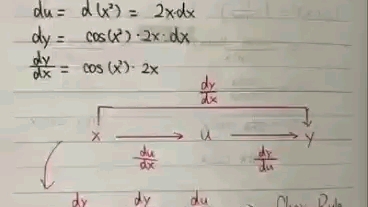 du = d(x²) = 2x·dx
dy = cos(x²)·2x·dx
dy/dx = cos(x²)·2x
dy/dx
x → u → y
du/dx dy/du
dy dy du